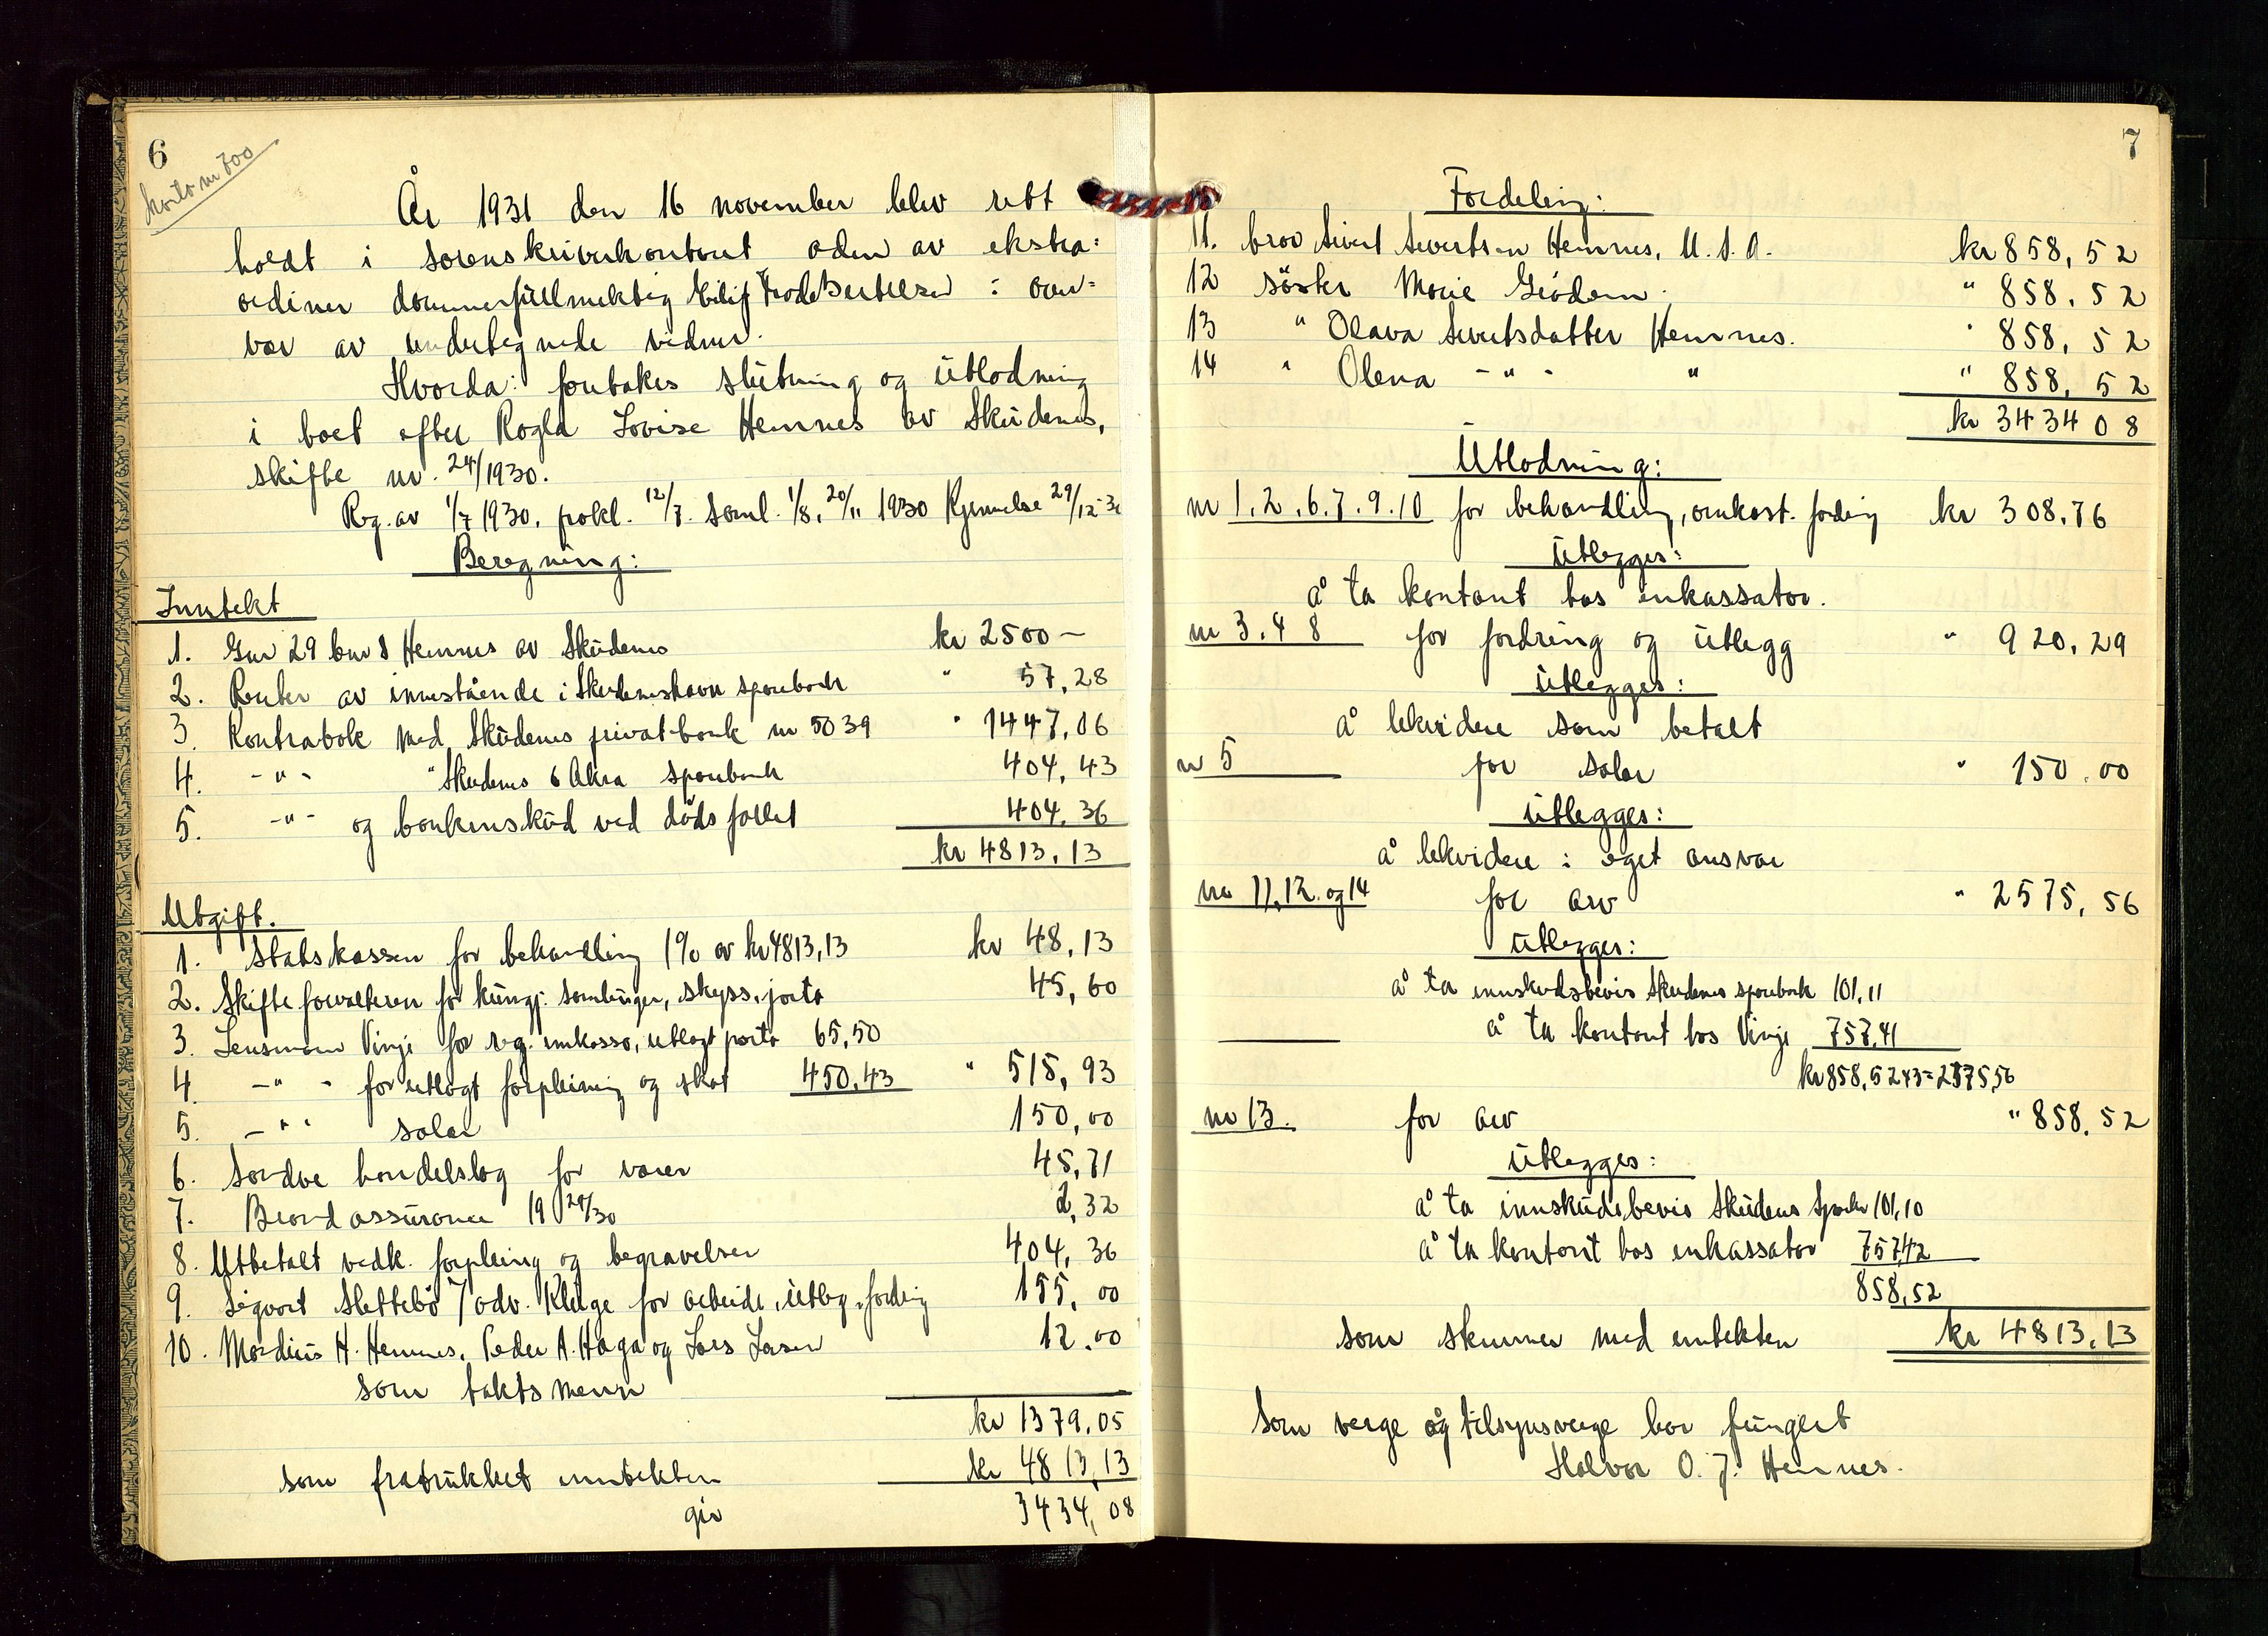 6
konto nr 700
År 1931 den 16 november blev rett
holdt i sorenskriverkontoret av ekstra=
ordinær dommerfullmektig Eilif Frode Bertelsen : over=
var av undertegnede vidner.
Hvorda: foretokes slutning og utlodning
i boet efter Ragla Lovise Hemnes av Skudenes,
skifte nr. 24/1930.
Reg. av 1/7 1930, prokl. 12/7. saml. 1/8, 20/11 1930 Kjennelse 29/12-30
Beregning:
Inntekt
1. Gnr 29 bnr 8 Hemnes av Skudenes kr 2500 –
2. Renter av innestående i Skudeneshavn sparebank " 57,28
3. Kontrabok med Skudenes privatbank nr 5039 " 1447,06
4. - " - " Skudenes & Akra sparebank 404,43
5. - " - og bankinskud ved dødsfallet 404,36
kr 4813,13
Utgift.
1. Statskassen for behandling 1% av kr 4813,13 kr 48,13
2. Skifteforvalteren for kungj. samlinger, skyss, porto 45,60
3. Lensmann Vinje for reg. innkasso, utlagt porto 65,50
4. - " - for utlagt forpleining og skat 450,43 " 515,93
5. - " - salær 150,00
6. Sandve handelslag for varer 45,71
7. Brandassuranse 19 29/30 2,32
8. Utbetalt vedk. forpleing og begravelsen 404,36
9. Sigvart Slettebø / adv. Kluge for arbeide, utleg. fordring 155,00
10. Mardius H. Hemnes, Peder A. Haga og Lars Larsen 12.00
som takstmenn
kr 1379,05
som fratrukket inntekten kr 4813,13
gir 3434,08
7
Fordeling:
11. bror Sivert Sivertsen Hemnes, U.S.A. kr 858,52
12 søster Marie Grødem. " 858,52
13 " Olava Sivertsdatter Hemnes. " 858,52
14 " Olena - " - " " 858,52
kr 3434 08
Utlodning:
nr 1.2.6.7.9.10 for behandling, omkost. fordring kr 308.76
Utlegges:
å ta kontant hos inkassator.
nr 3.4 8 for fordring og utlegg " 920,29
Utlegges:
å likvidere som betalt
nr 5 for salær " 150.00
Utlegges:
å likvidere : eget ansvar
nr 11, 12. og 14 for arv " 2575,56
Utlegges:
å ta innskudsbevis Skudenes sparebank 101,11
å ta kontant hos Vinje 757,41
kr 858,52×3=2575,56
nr 13. for arv " 858.52
Utlegges:
å ta innskudsbevis Skudenes Sparebk 101,10
å ta kontant hos inkassator 757,42
858,52
som stemmer med inntekten kr 4813.13
Som verge og tilsynsverge har fungert
Halvor O. J. Hemnes.